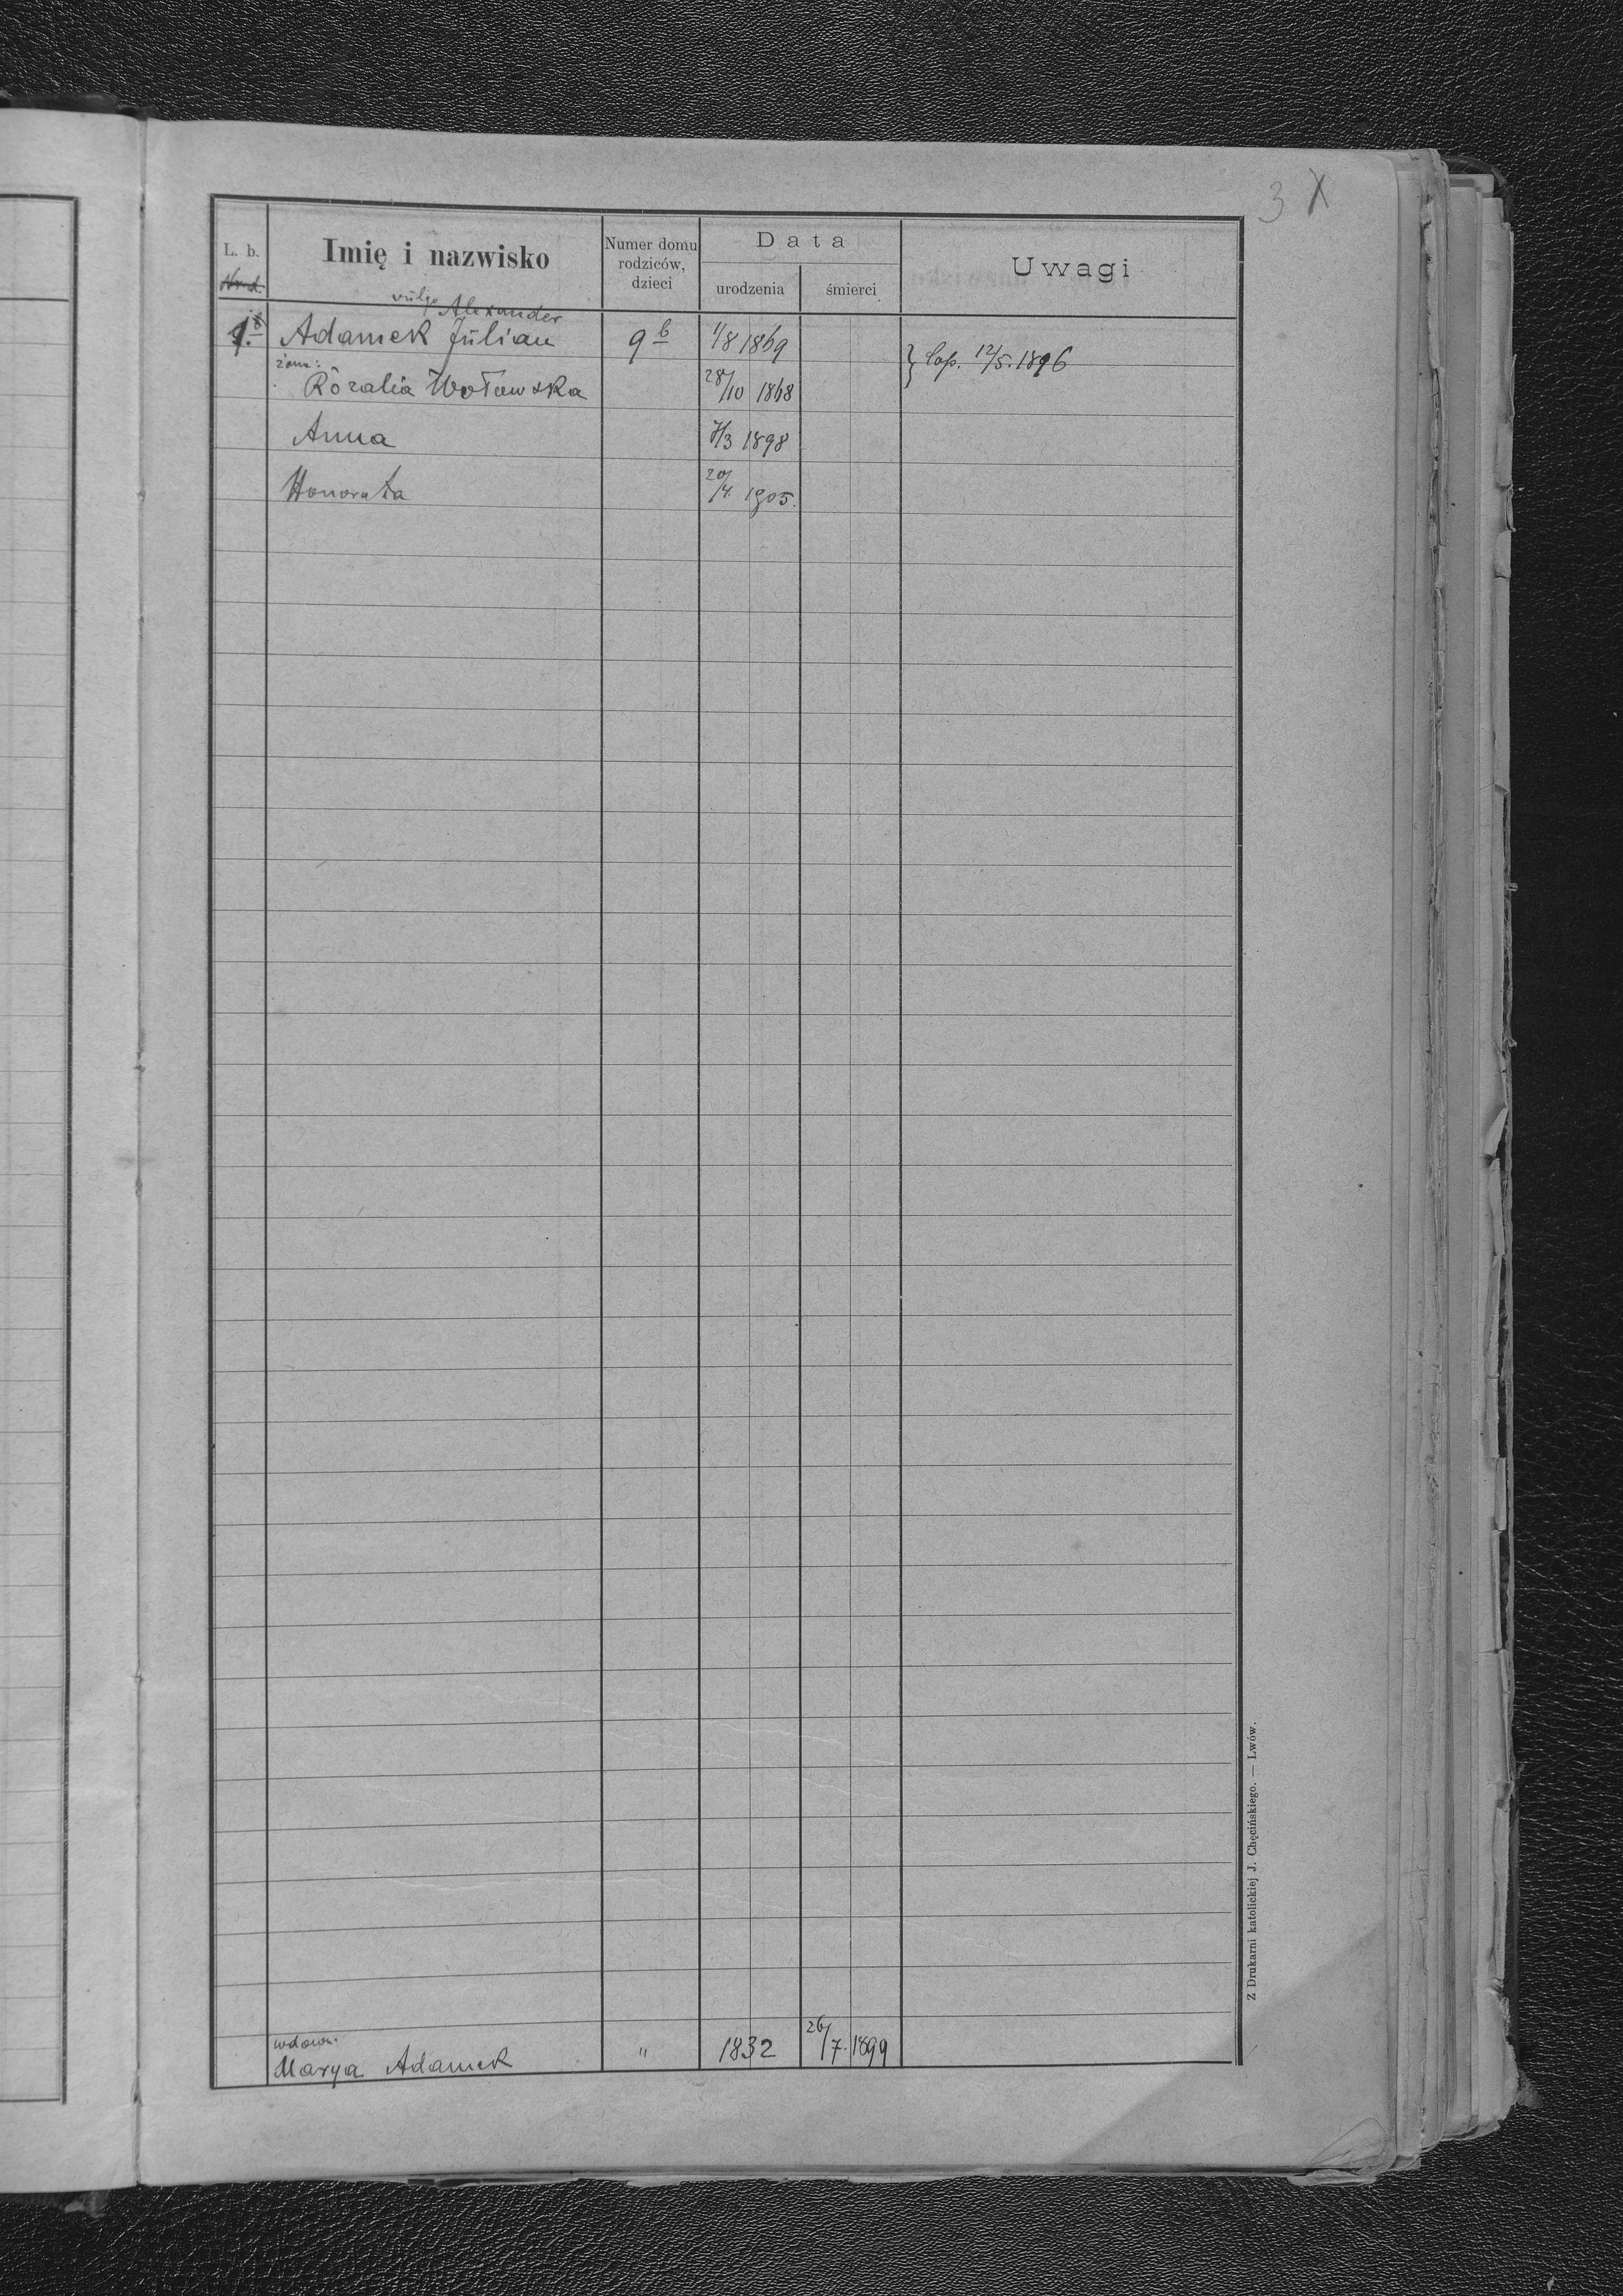 3 X
L. b. Imię i nazwisko Numer domu rodziców, dzieci Data urodzenia śmierci Uwagi
vulgo Alexander
Adamek Julian 9 b 1/8 1869
żona: } cop. 12/5. 1896
Rozalia Wołowska 28/10 1868
Anna 7/3 1898
Honorata 20/4. 1905.
wdowa.
Marya Adamek " 1832 26/7. 1899
Z Drukarni katolickiej J. Chęcińskiego. — Lwów.